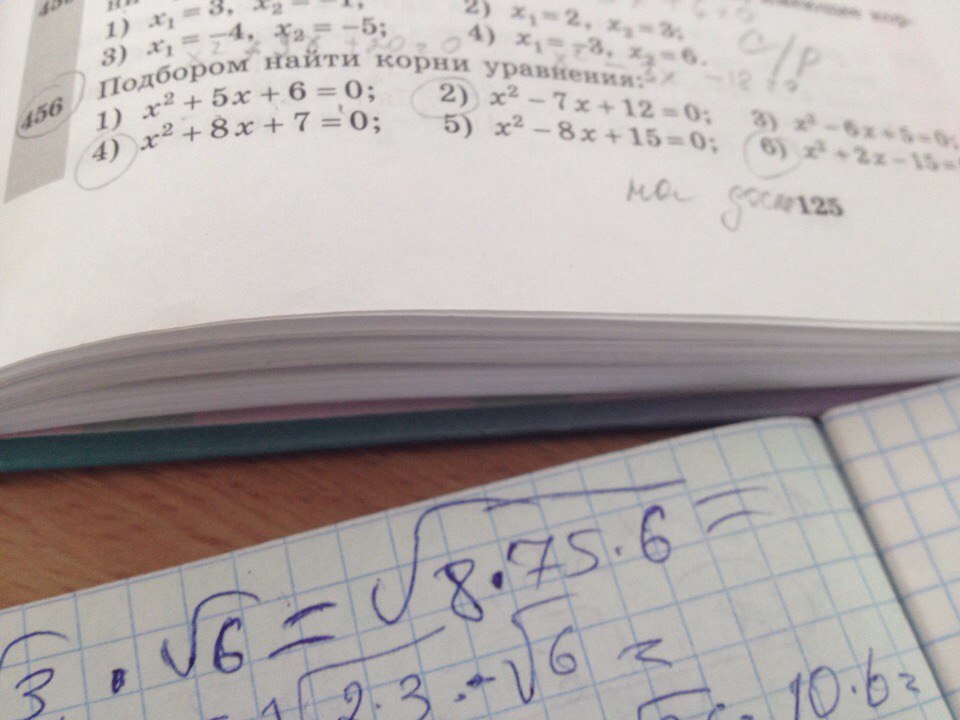 1) x₁ = 3, x₂ = −1; 2) x₁ = 2, x₂ = 3;
3) x₁ = −4, x₂ = −5; 4) x₁ = −3, x₂ = 6.
с/р
456 Подбором найти корни уравнения:
1) x² + 5x + 6 = 0; 2) x² − 7x + 12 = 0; 3) x² − 6x + 5 = 0;
4) x² + 8x + 7 = 0; 5) x² − 8x + 15 = 0; 6) x² + 2x − 15 =
на дом 125
3 · √6 = √8·75·6 =
= √2·3 · √6 =
10·6 =